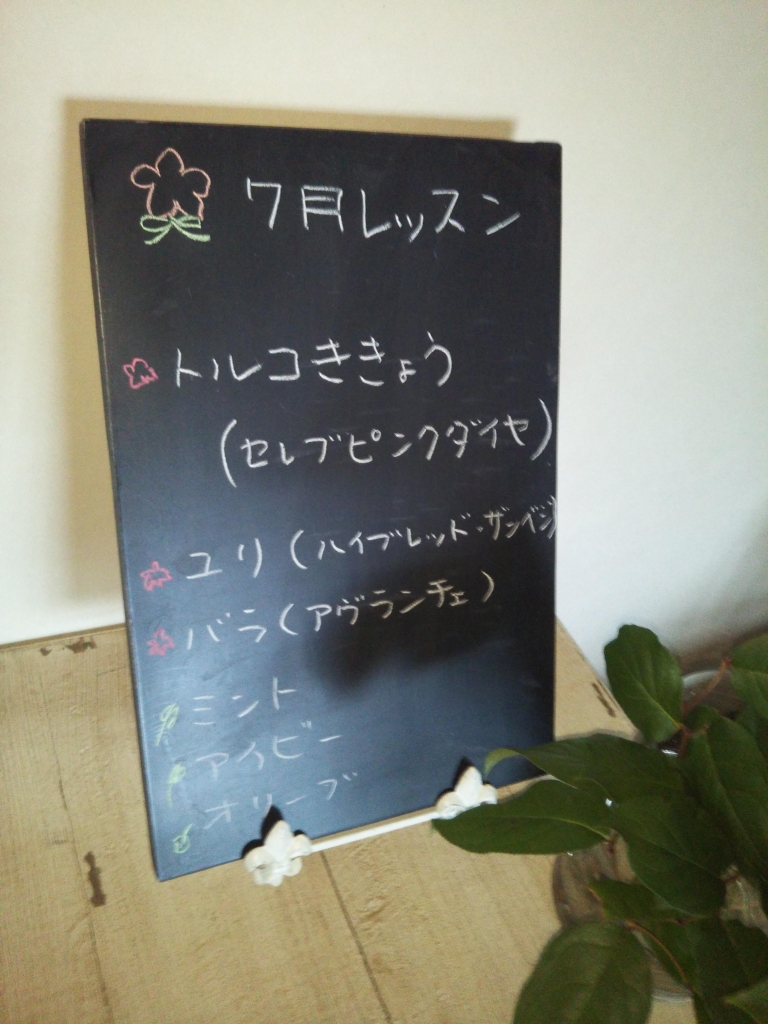 7月レッスン
トルコききょう
(セレブピンクダイヤ)
ユリ(ハイブレッド・ザンベジ)
バラ(アヴランチェ)
ミント
アイビー
オリーブ